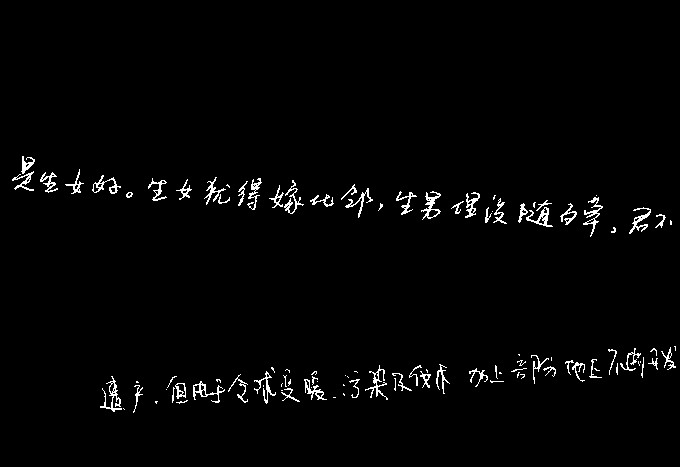 是生女好。生女犹得嫁比邻，生男埋没随百草。君不
遗产，但由于全球变暖、污染及伐木 加上部份地区不断开发